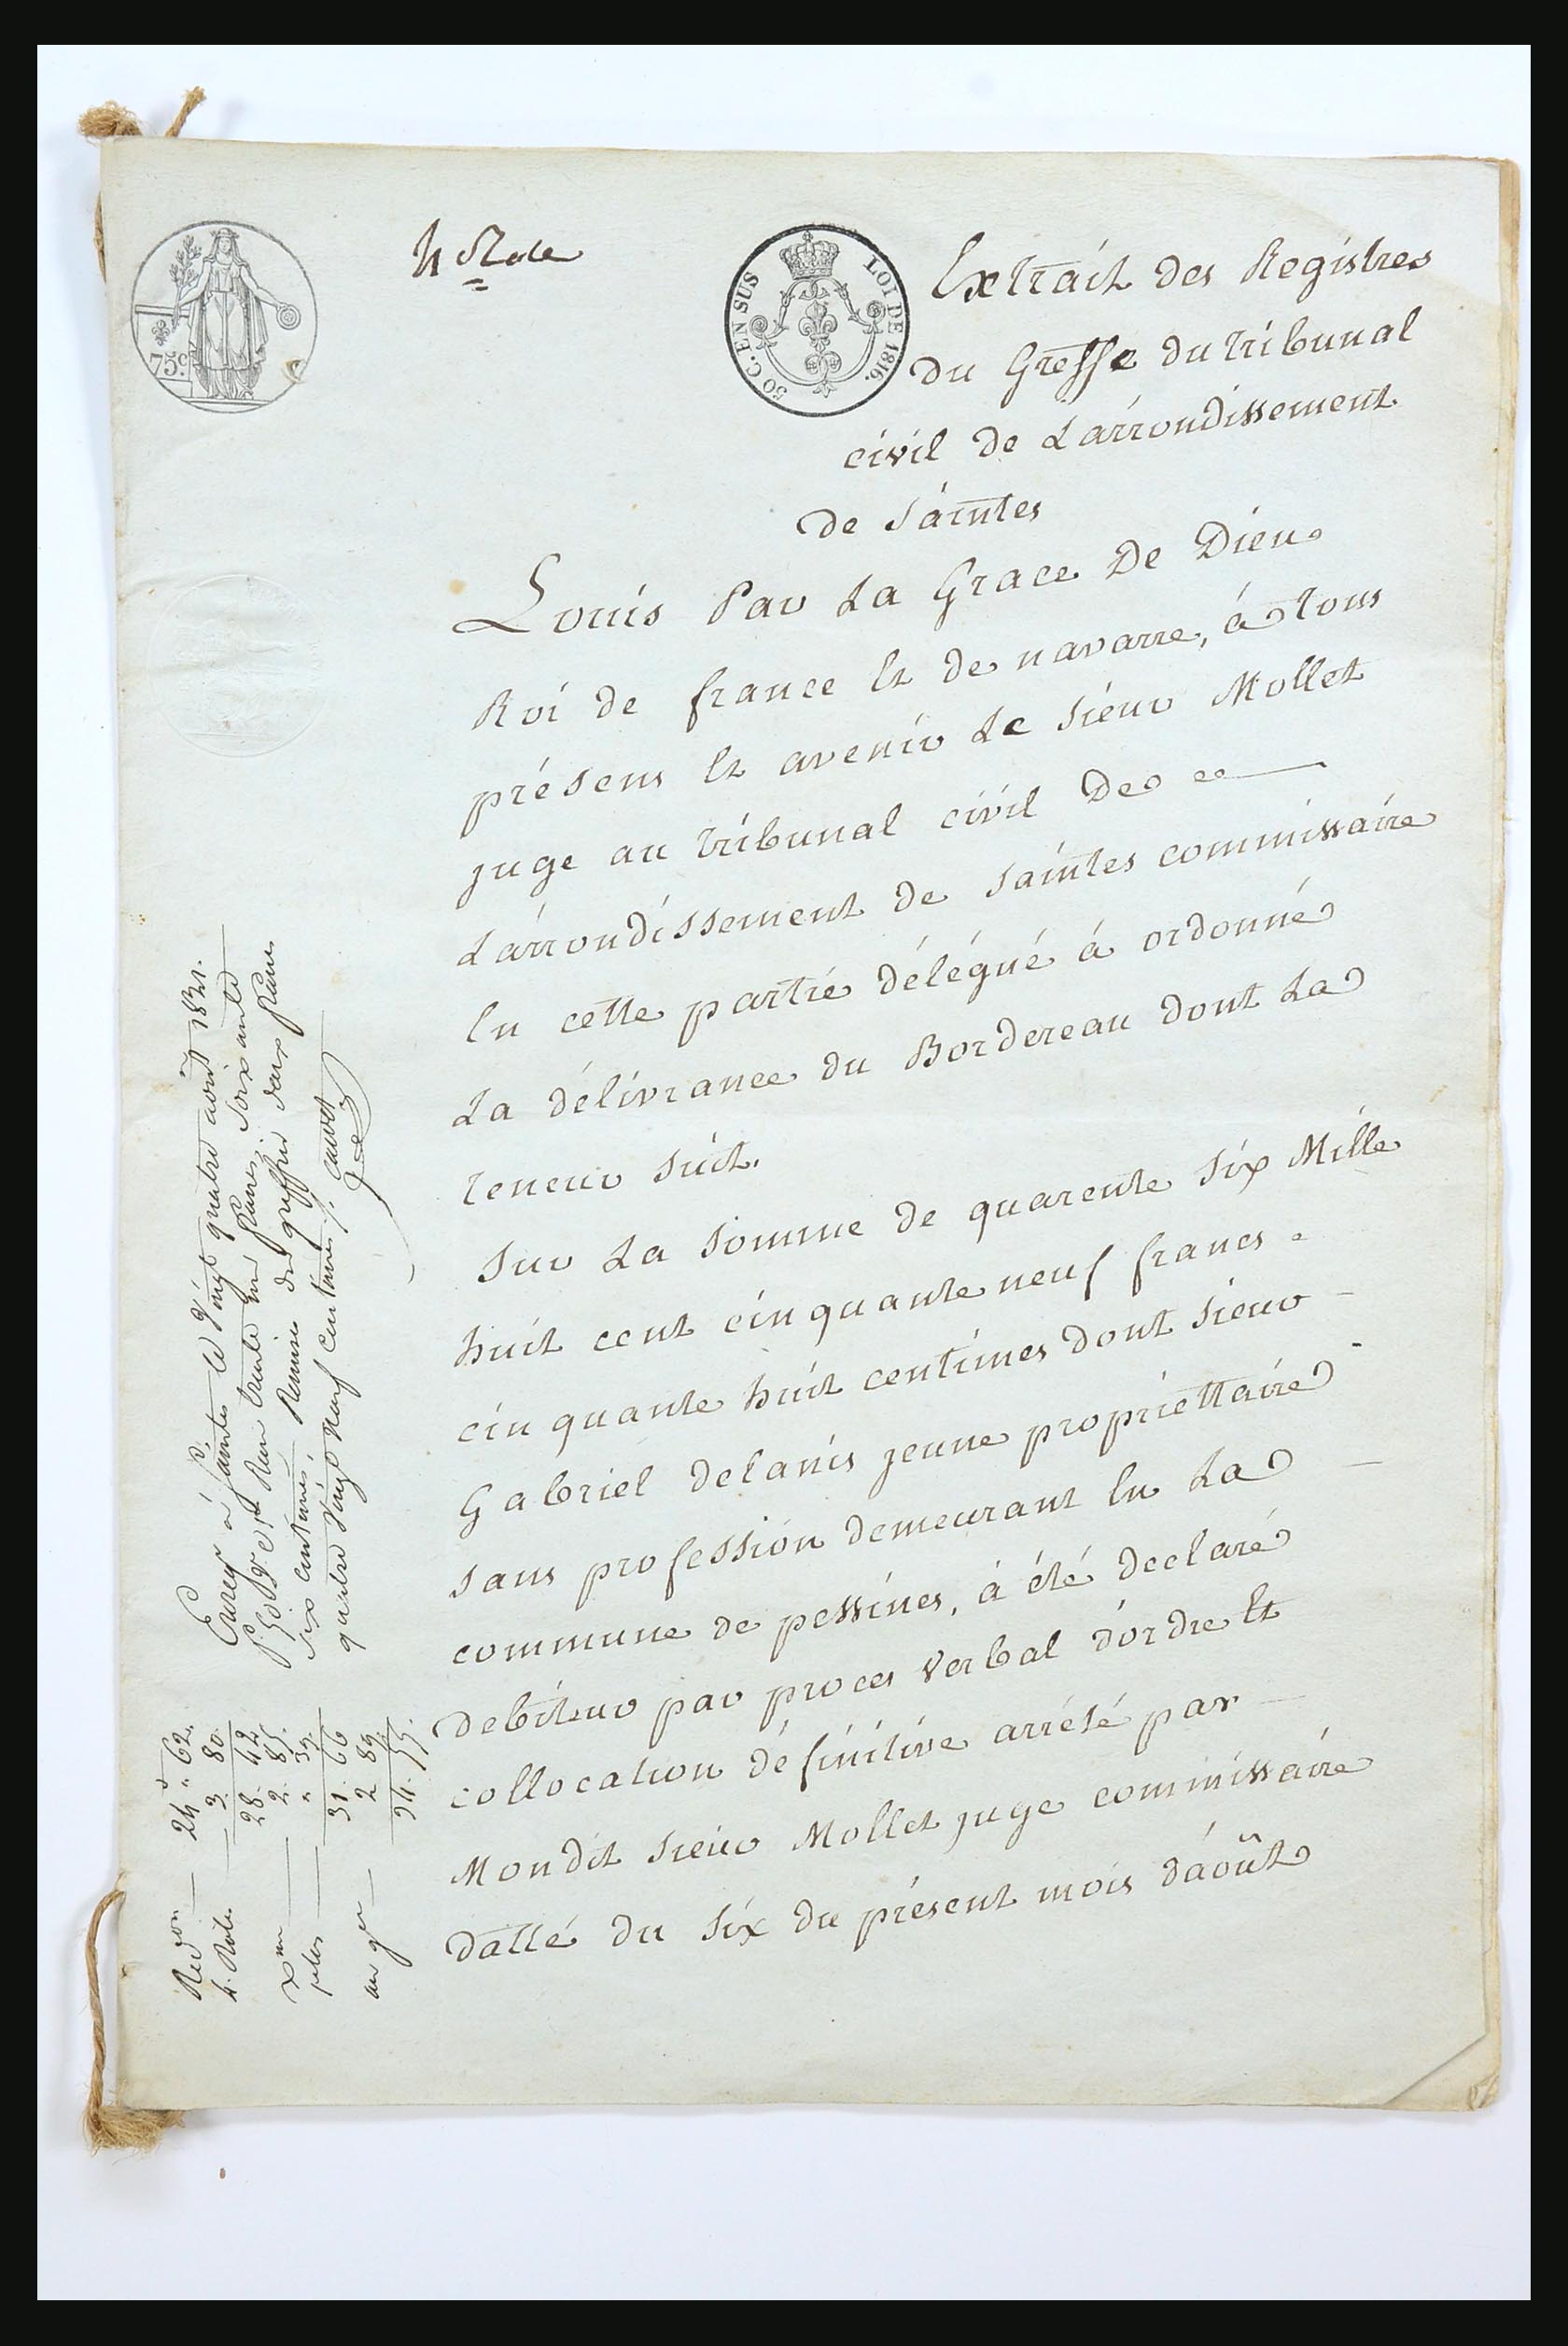 4 Role
75c.
50 C. EN SUS
LOI DE 1816.
Extrait des Registres
du Greffe du tribunal
civil de Larrondissement
de Saintes
Louis Par La Grace De Dieu
Roi de france Et de navarre, à tous
présens Et avenir Le Sieur Mollet
juge au tribunal civil De ce
Larrondissement de Saintes commissaire
En cette partie délégué à ordonné
La délivrance du Bordereau dont La
teneur Suit.
Sur La Somme de quarente Six Mille
huit cent cinquante neuf francs
cinquante huit centimes dont Sieur
Gabriel delanis jeune propriettaire
Sans profession demeurant En La
commune de pessines, à été declaré
debiteur par proces verbal d'ordre Et
collocation définitive arrêté par
Mondit Sieur Mollet juge commissaire
datté du Six du présent mois d'août
Enreg à Saintes le vingt quatre août 1821.
Reçu trente un francs soixante
six centimes, Remise du greffier deux francs
quatre vingt neuf centimes
24 " 62.
4. Role 3. 80.
28. 42
2. 85.
31. 66
2 89.
34. 55.